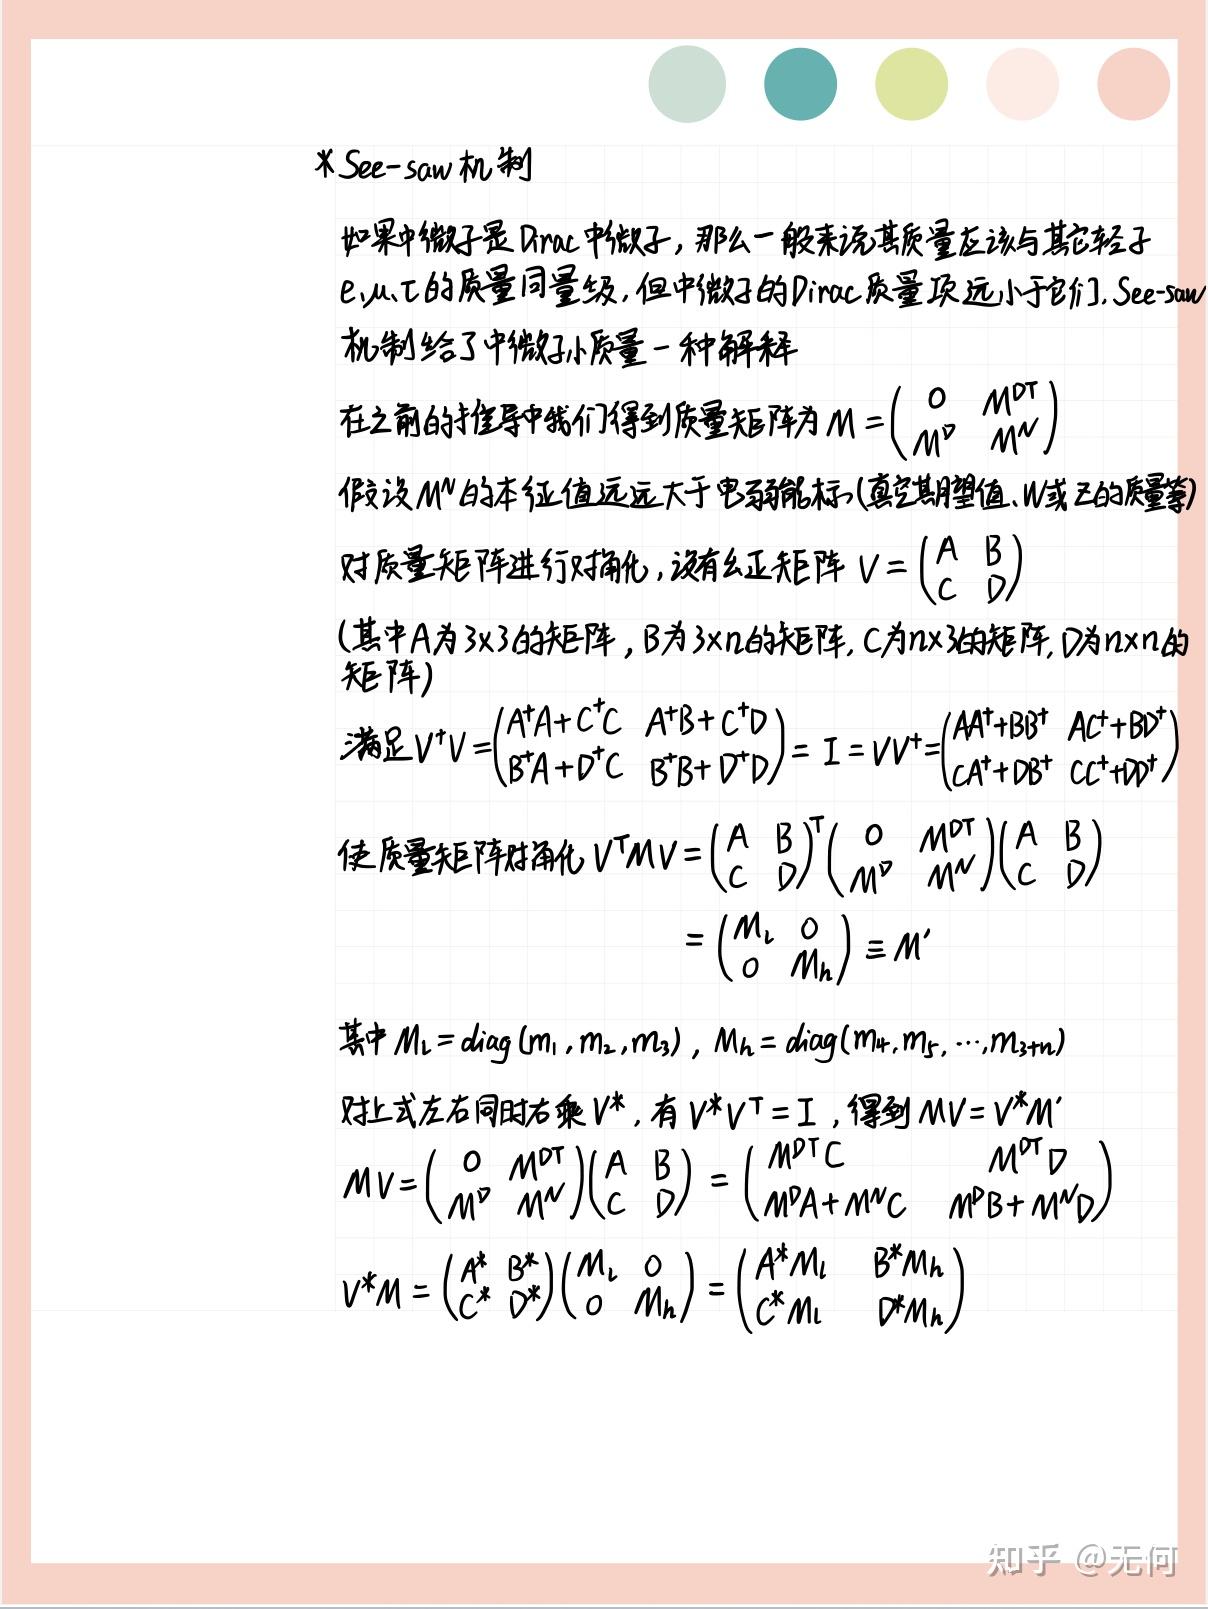 *See-saw机制
如果中微子是Dirac中微子，那么一般来说其质量应该与其它轻子
e、μ、τ的质量同量级，但中微子的Dirac质量项远小于它们. See-saw
机制给了中微子小质量一种解释
在之前的推导中我们得到质量矩阵为 M = (0 M^{DT}; M^D M^N)
假设M^N的本征值远远大于电弱能标(真空期望值、W或Z的质量等)
对质量矩阵进行对角化，设有幺正矩阵 V = (A B; C D)
(其中A为3×3的矩阵，B为3×n的矩阵，C为n×3的矩阵，D为n×n的
矩阵)
满足 V†V = (A†A+C†C A†B+C†D; B†A+D†C B†B+D†D) = I = VV† = (AA†+BB† AC†+BD†; CA†+DB† CC†+DD†)
使质量矩阵对角化 V^T M V = (A B; C D)^T (0 M^{DT}; M^D M^N) (A B; C D)
= (M_l 0; 0 M_h) ≡ M'
其中 M_l = diag(m_1, m_2, m_3), M_h = diag(m_4, m_5, ⋯, m_{3+n})
对上式左右同时右乘 V*，有 V*V^T = I，得到 MV = V*M'
MV = (0 M^{DT}; M^D M^N) (A B; C D) = (M^{DT}C M^{DT}D; M^D A+M^N C M^D B+M^N D)
V*M = (A* B*; C* D*) (M_l 0; 0 M_h) = (A*M_l B*M_h; C*M_l D*M_h)
知乎 @无何